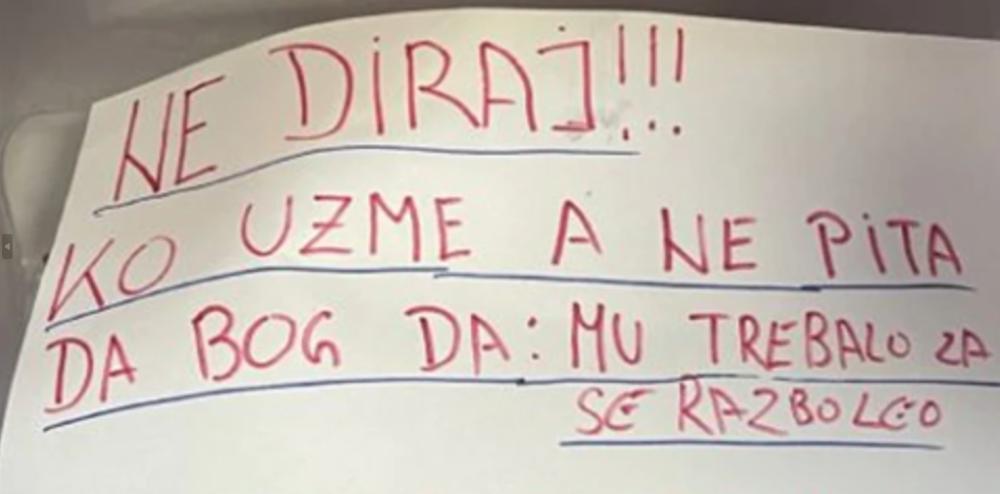 NE DiRAJ!!!
KO UZME A NE PiTA
DA BOG DA: MU TREBALO ZA
SE RAZBOLEO